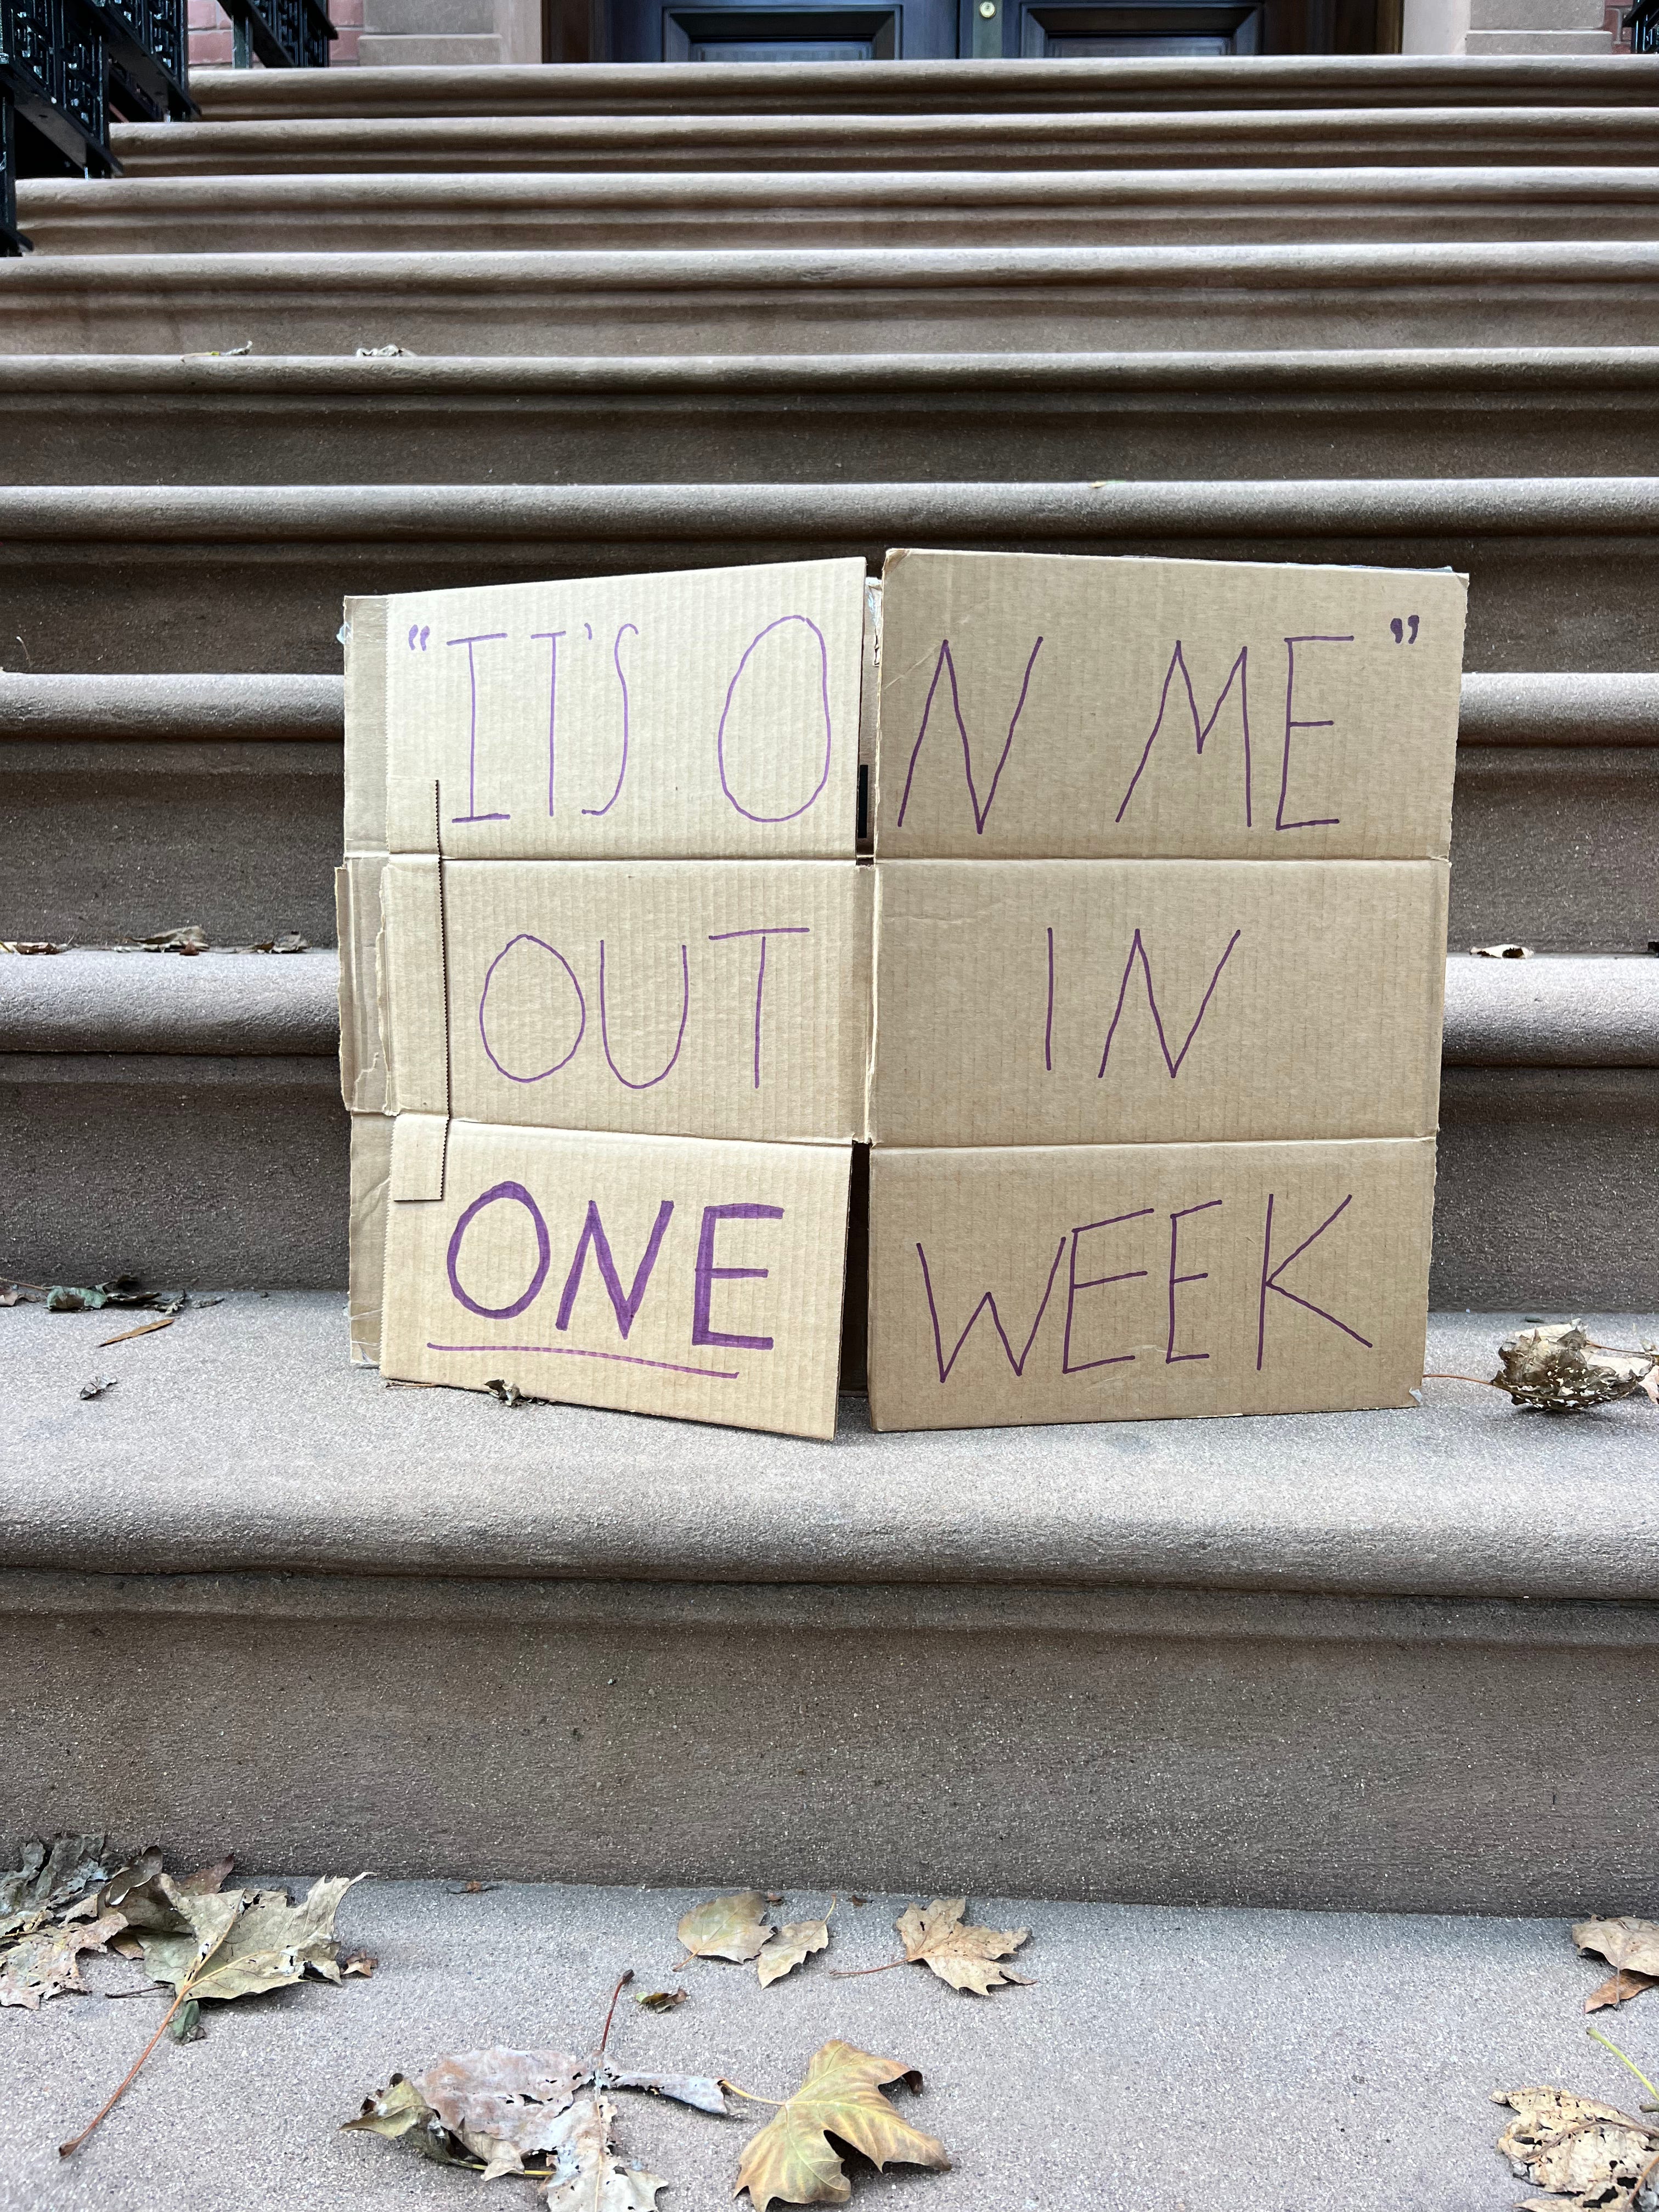 “IT'S ON ME”
OUT IN
ONE WEEK